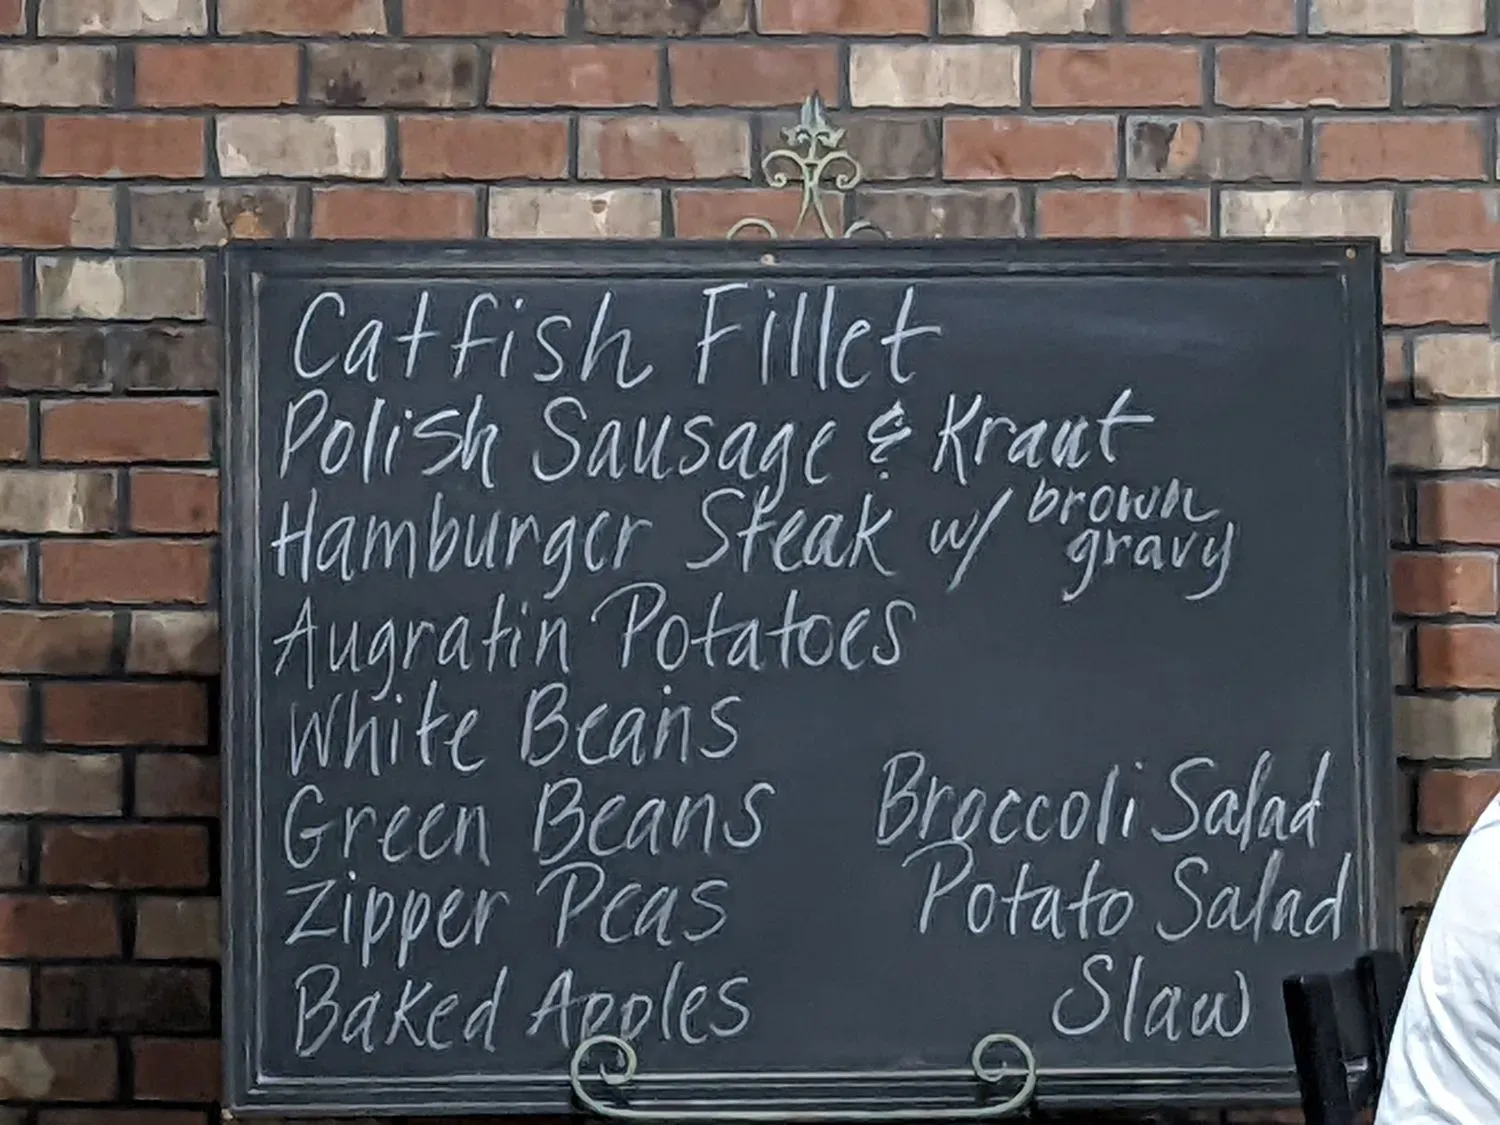 Catfish Fillet
Polish Sausage & Kraut
Hamburger Steak w/ brown gravy
Augratin Potatoes
White Beans
Green Beans
Zipper Peas
Baked Apples
Broccoli Salad
Potato Salad
Slaw